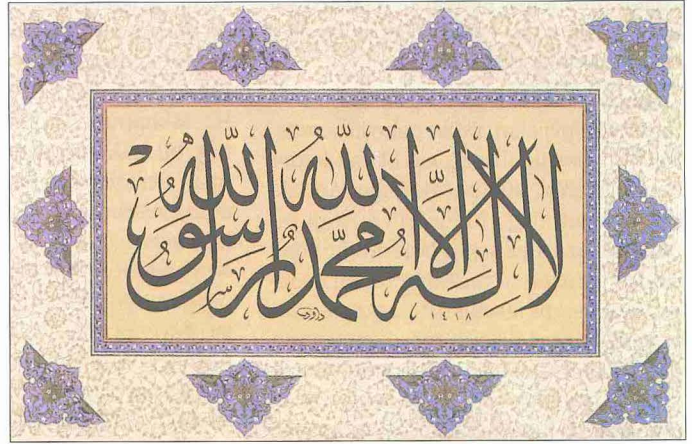 لا إله إلا الله محمد رسول الله
داود
١٤١٨